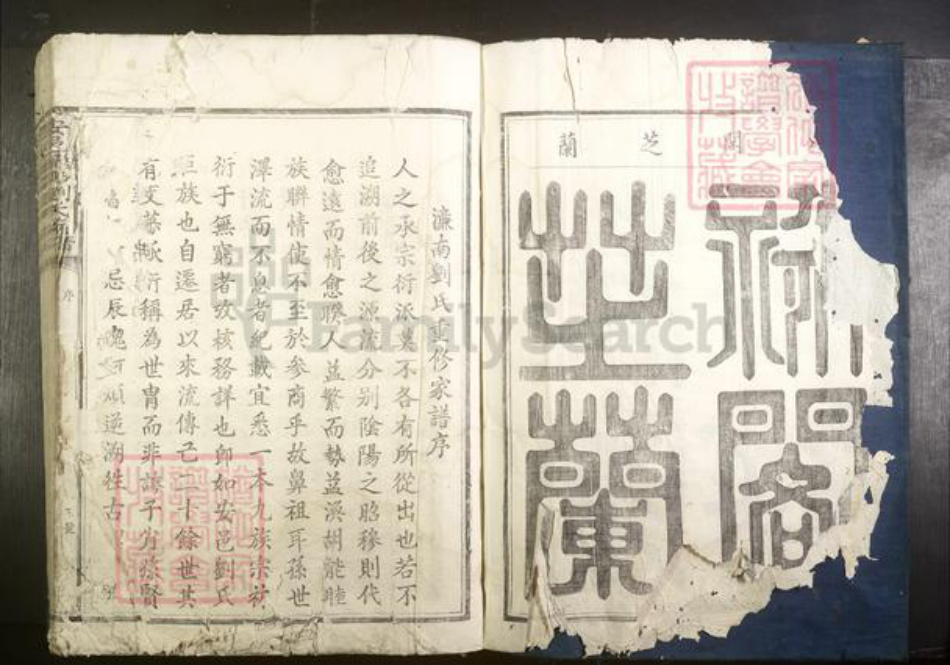 閣芝蘭
閣
芝蘭
濂南劉氏重修家譜序
人之承宗衍派莫不各有所從出也若不
追溯前後之源流分别陰陽之昭穆則代
愈遠而情愈睽人益繁而勢益渙胡能睦
族聯情使不至於參商乎故鼻祖耳孫世
澤流而不息者紀載宜悉一本九族宗
衍于無窮者攷核務詳也卽如安邑劉氏
巨族也自遷居以來流傳已二十餘世其
有文蒸衍稱為世胄而非誇予方殊賢
忌辰愧何須遠溯往古
序
FamilySearch